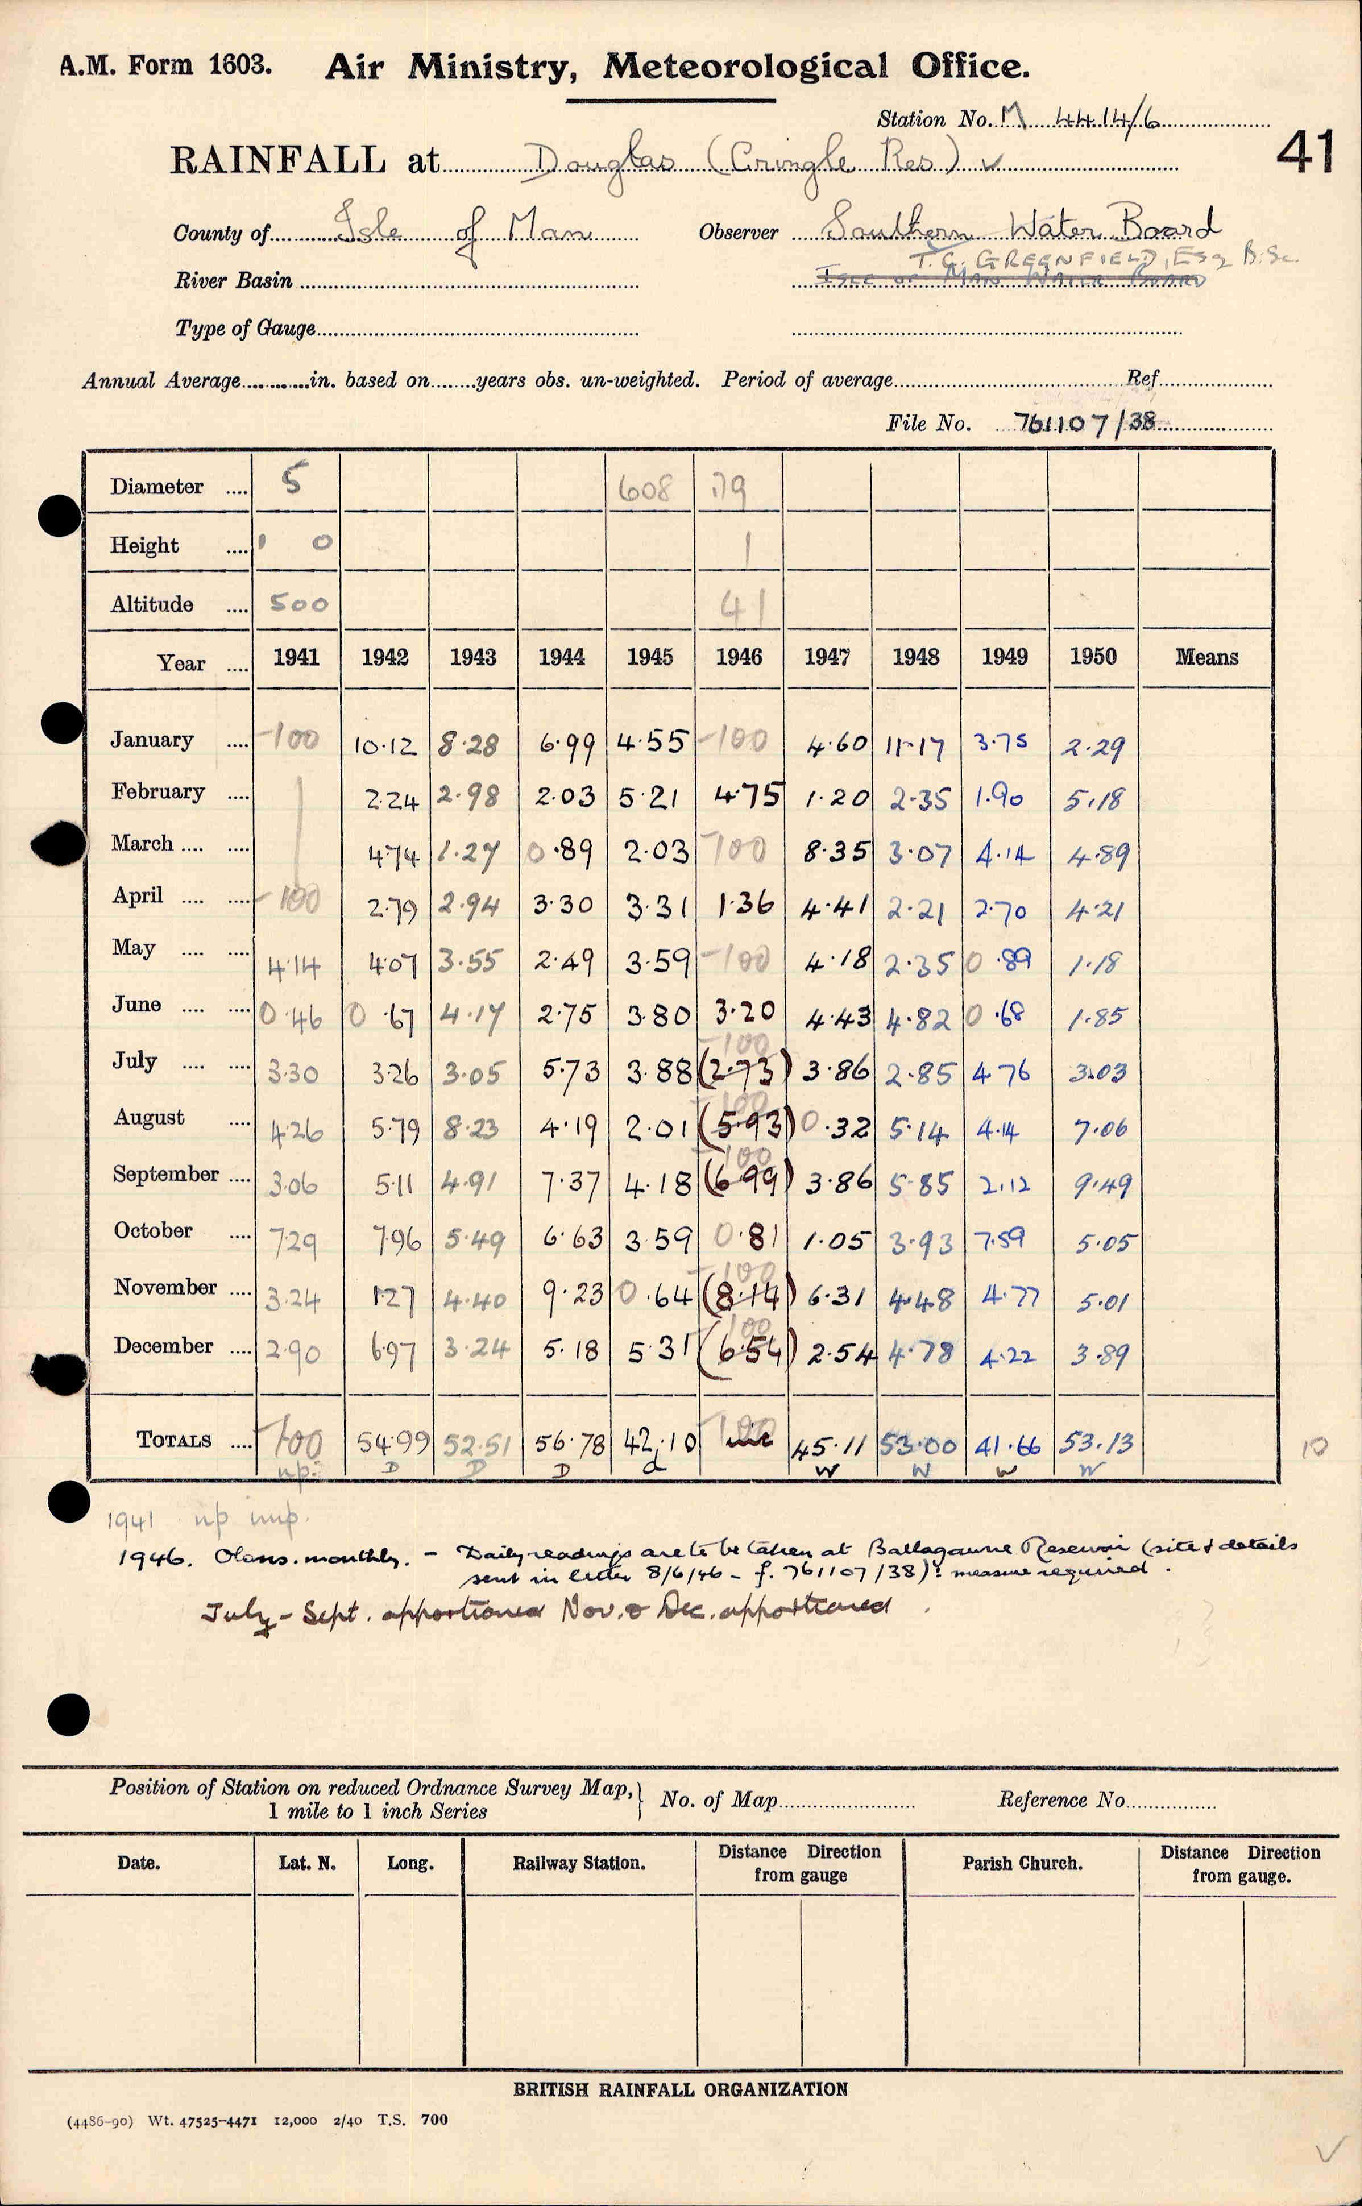 A.M. Form 1603. Air Ministry, Meteorological Office.
Station No. M 4414/6
41
RAINFALL at Douglas (Cringle Res) ✓
County of Isle of Man Observer Southern Water Board
T.C. GREENFIELD, Esq B.Sc.
River Basin ISLE OF MAN WATER BOARD
Type of Gauge
Annual Average in. based on years obs. un-weighted. Period of average Ref
File No. 761107/38
Diameter .... 5 608 ·79
Height .... 1 0 1
Altitude .... 500 41
Year .... 1941 1942 1943 1944 1945 1946 1947 1948 1949 1950 Means
January .... -100 10·12 8·28 6·99 4·55 -100 4·60 11·17 3·75 2·29
February .... 2·24 2·98 2·03 5·21 4·75 1·20 2·35 1·90 5·18
March .... .... 4·74 1·27 0·89 2·03 -100 8·35 3·07 4·14 4·89
April .... .... -100 2·79 2·94 3·30 3·31 1·36 4·41 2·21 2·70 4·21
May .... .... 4·14 4·07 3·55 2·49 3·59 -100 4·18 2·35 0·89 1·18
June .... .... 0·46 0·67 4·17 2·75 3·80 3·20 4·43 4·82 0·68 1·85
-100
July .... .... 3·30 3·26 3·05 5·73 3·88 (2·73) 3·86 2·85 4·76 3·03
-100
August .... 4·26 5·79 8·23 4·19 2·01 (5·93) 0·32 5·14 4·14 7·06
-100
September .... 3·06 5·11 4·91 7·37 4·18 (6·99) 3·86 5·85 2·12 9·49
October .... 7·29 7·96 5·49 6·63 3·59 0·81 1·05 3·93 7·59 5·05
-100
November .... 3·24 1·27 4·40 9·23 0·64 (8·14) 6·31 4·48 4·77 5·01
-100
December .... 2·90 6·97 3·24 5·18 5·31 (6·54) 2·54 4·78 4·22 3·89
TOTALS .... -100 54·99 52·51 56·78 42·10 -100 inc 45·11 53·00 41·66 53·13 10
np: D D D d W W W W
1941 np imp.
1946. Obsns. monthly. - Daily readings are to be taken at Ballagawne Reservoir (site & details
sent in letter 8/6/46 - f. 761107/38): measure required.
July - Sept. apportioned Nov. & Dec. apportioned.
Position of Station on reduced Ordnance Survey Map, } No. of Map Reference No.
1 mile to 1 inch Series
Date. Lat. N. Long. Railway Station. Distance Direction from gauge Parish Church. Distance Direction from gauge.
BRITISH RAINFALL ORGANIZATION
(4486-90) Wt. 47525-4471 12,000 2/40 T.S. 700
✓